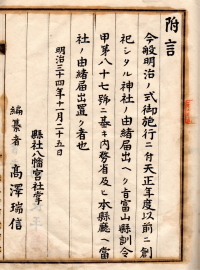 附言
今般明治ノ式御施行ニ付天正年度以前ニ創
祀シタル神社ノ由緒届出ヘク旨富山縣訓令
甲第八十七號ニ基キ内務省及ヒ本縣廳ヘ當
社ノ由緒届出置ク者也
明治三十四年十一月二十五日
縣社八幡宮社掌
編纂者 高澤瑞信